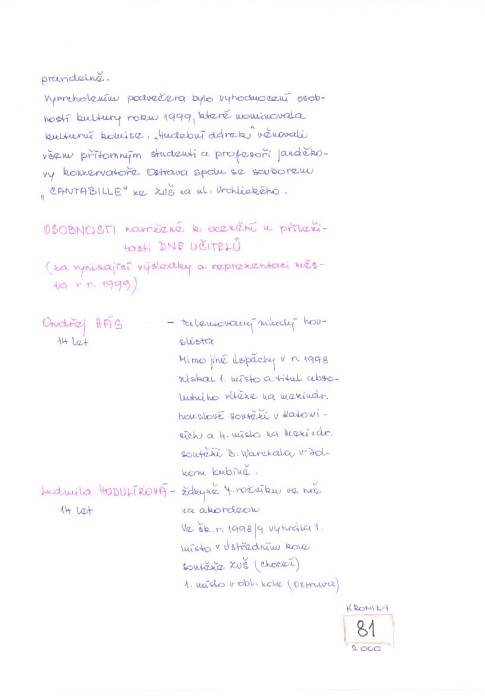 pravidelně.
Vyvrcholením podvečera bylo vyhodnocení osob-
ností kultury roku 1999, které nominovala
kulturní komise. „Hudební dárek" věnovali
všem přítomným studenti a profesoři Janáčko-
vy konzervatoře Ostrava spolu se souborem
„CANTABILLE" ze ZUŠ na ul. Vrchlického.
OSOBNOSTI navržené k ocenění u příleži-
tosti DNE UČITELŮ
(za vynikající výsledky a reprezentaci měs-
ta v r. 1999)
Ondřej HÁS - talentovaný mladý hou-
14 let slista
Mimo jiné úspěchy v r. 1998
získal 1. místo a titul abso-
lutního vítěze na mezinár.
houslové soutěži v Katowi-
cích a 4. místo na mezinár.
soutěži B. Warchala v Dol-
ním Kubíně.
Ludmila HODULÍKOVÁ - žákyně 7. ročníku ve hře
14 let na akordeon
Ve šk. r. 1998/9 vyhrála 1.
místo v Ústředním kole
soutěže ZUŠ (Choceň)
1. místo v obl. kole (Ostrava)
KRONIKA
81
2000